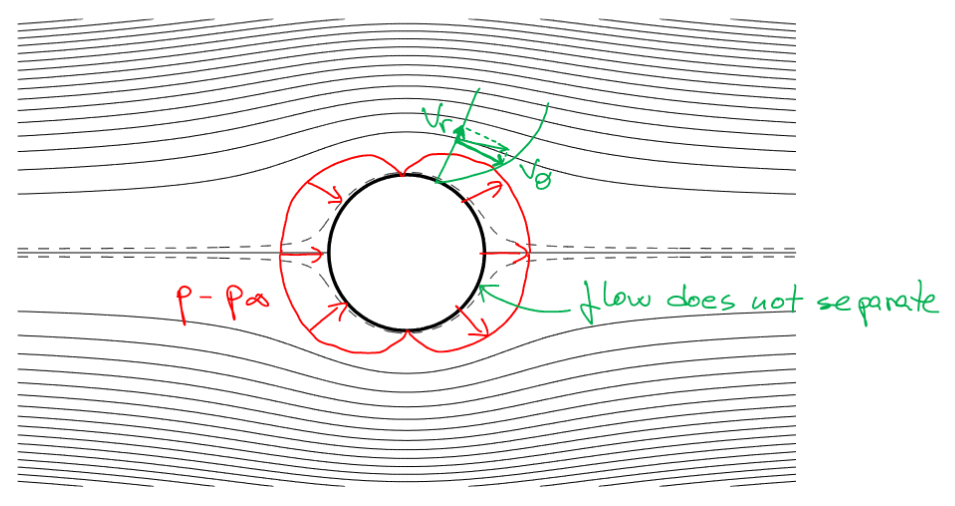 Vr
Vθ
p - p∞
flow does not separate